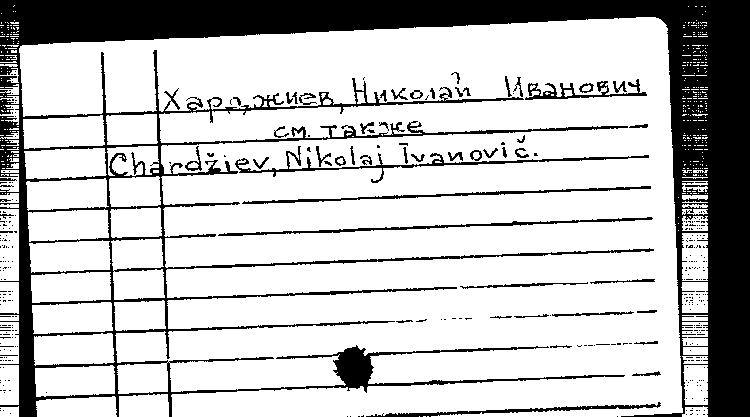 Харджиев, Николай Иванович
см. также
Chardžiev, Nikolaj Ivanovič.